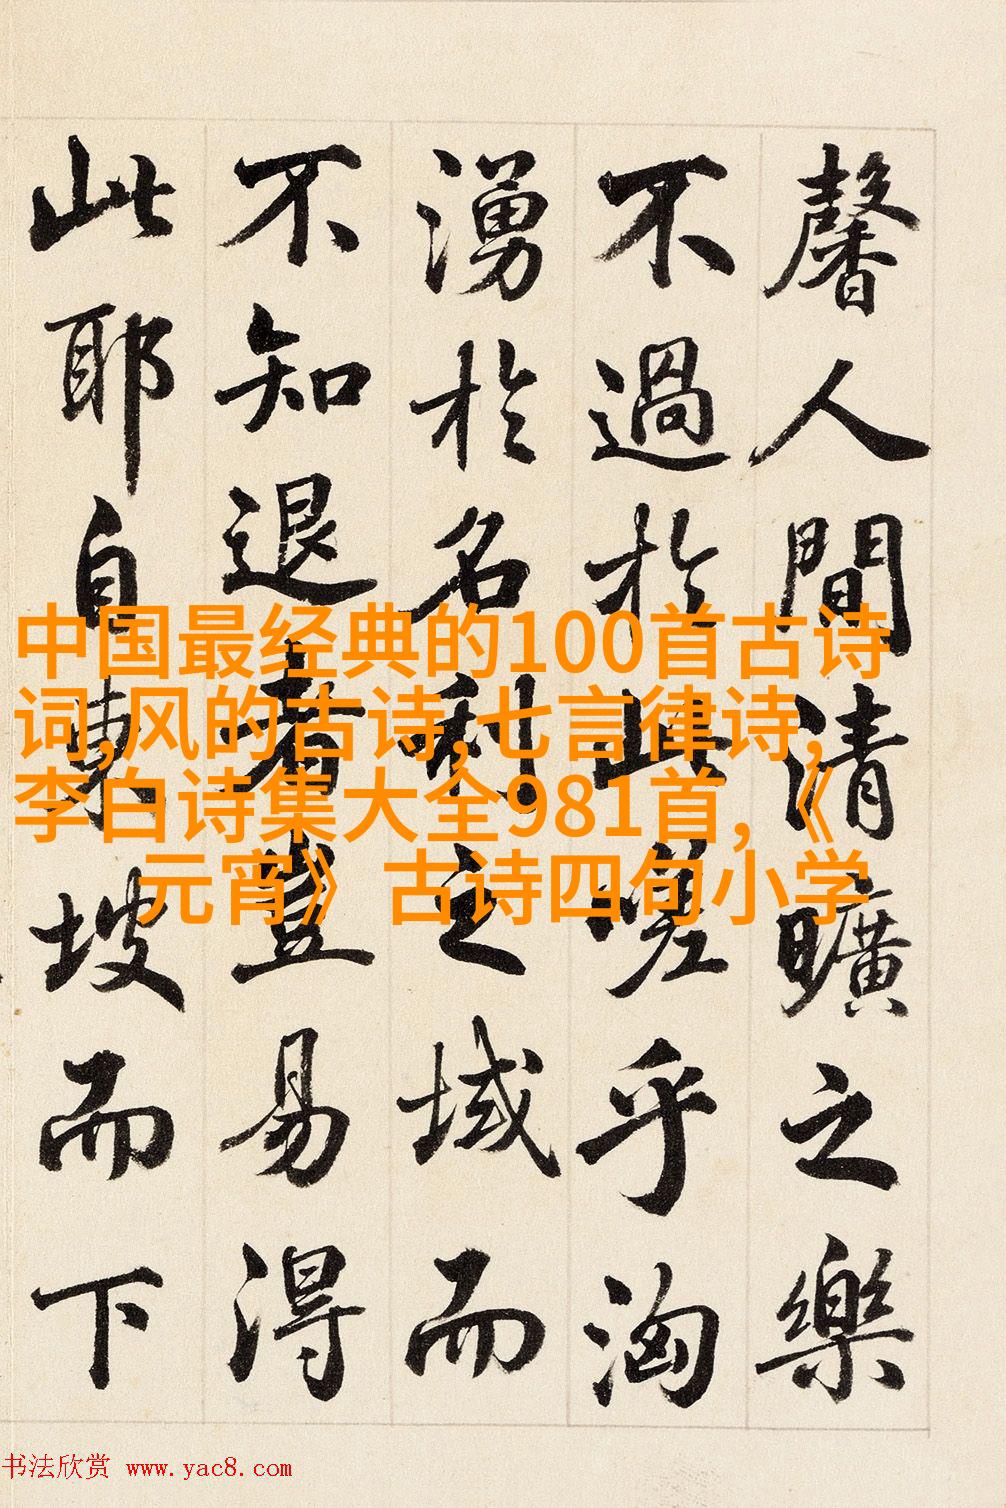 馨人間清曠之樂
不過於此嗟乎洶
湧於名利之域而
不知退者豈易得
此耶自東坡而下
中国最经典的100首古诗
词,风的古诗,七言律诗,
李白诗集大全981首,《
元宵》古诗四句小学
书法欣赏 www.yac8.com